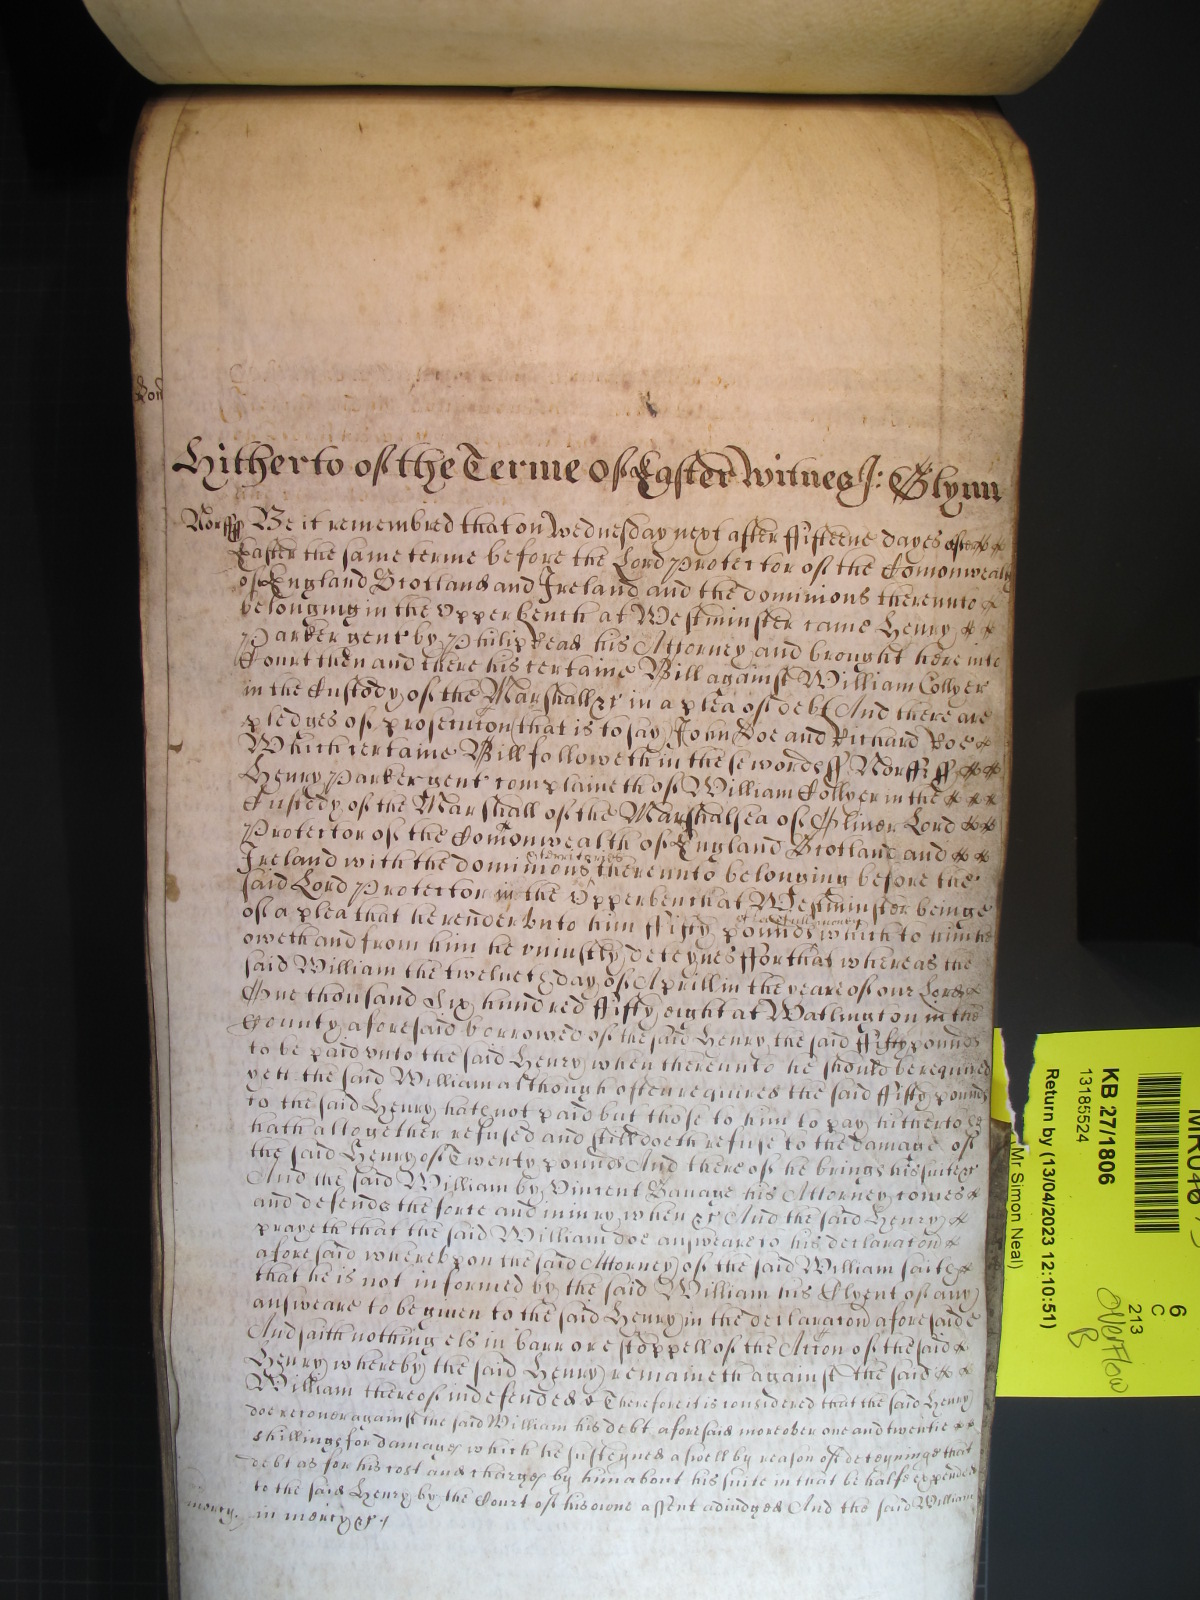 Lon
Hitherto of the Terme of Easter Witnes J: Glynn
Norff ff Be it remembred that on Wednesday next after ffifteene dayes of
Easter the same terme before the Lord Protector of the Comonwealth
of England Scotland and Ireland and the dominions thereunto
belonging in the Upper bench at Westminster came Henry
Parker gent by Philip Read his Attorney and brought here into
Court then and there his certaine Bill against William Collyer
in the Custody of the Marshall &c in a plea of debt And there are
pledges of prosecution (that is to say) John Doe and Richard Roe
Which certaine Bill followeth in these words ff Norff ff
Henry Parker gent complaineth of William Collyer in the
Custody of the Marshall of the Marshalsea of Oliver Lord
Protector of the Comonwealth of England Scotland and
Ireland with the dominions & territories thereunto belonging before the
said Lord Protector in the Upper bench at Westminster beinge
of a plea that he render unto him ffifty pounds of lawfull money which to him he
oweth and from him he uniustly deteynes ffor that whereas the
said William the twelveth day of Aprill in the yeare of our Lord
One thousand Six hundred ffifty eight at Watlington in the
County aforesaid borrowed of the said Henry the said ffifty pounds
to be paid unto the said Henry when thereunto he should be required
yett the said William although often requires the said ffifty pounds
to the said Henry hath not paid but those to him to pay hitherto
hath altogether refused and still doeth refuse to the damage of
the said Henry of Twenty pounds And thereof he brings his suite &c
And the said William by Vincent Savage his Attorney comes
and defends the force and iniury when &c And the said Henry
prayeth that the said William doe answeare to his declaracon
aforesaid whereupon the said Attorney of the said William saith
that he is not informed by the said William his Clyent of any
answeare to be given to the said Henry in the declaracon aforesaid
And saith nothing els in barr or estoppell of the Accon of the said
Henry whereby the said Henry remaineth against the said
William thereof indefended Therefore it is considered that the said Henry
doe recover against the said William his debt aforesaid moreober one and twentie
shillings for damages which he susteyned aswell by reason of deteyninge that
debt as for his cost and charges by him about his suite in that behalfe expended
to the said Henry by the Court of his owne assent adiudged And the said William
mercy. in mercy &c
MR046
KB 27/1806
13185524
Return by (13/04/2023 12:10:51)
(Mr Simon Neal)
6
C
213
Overflow
B